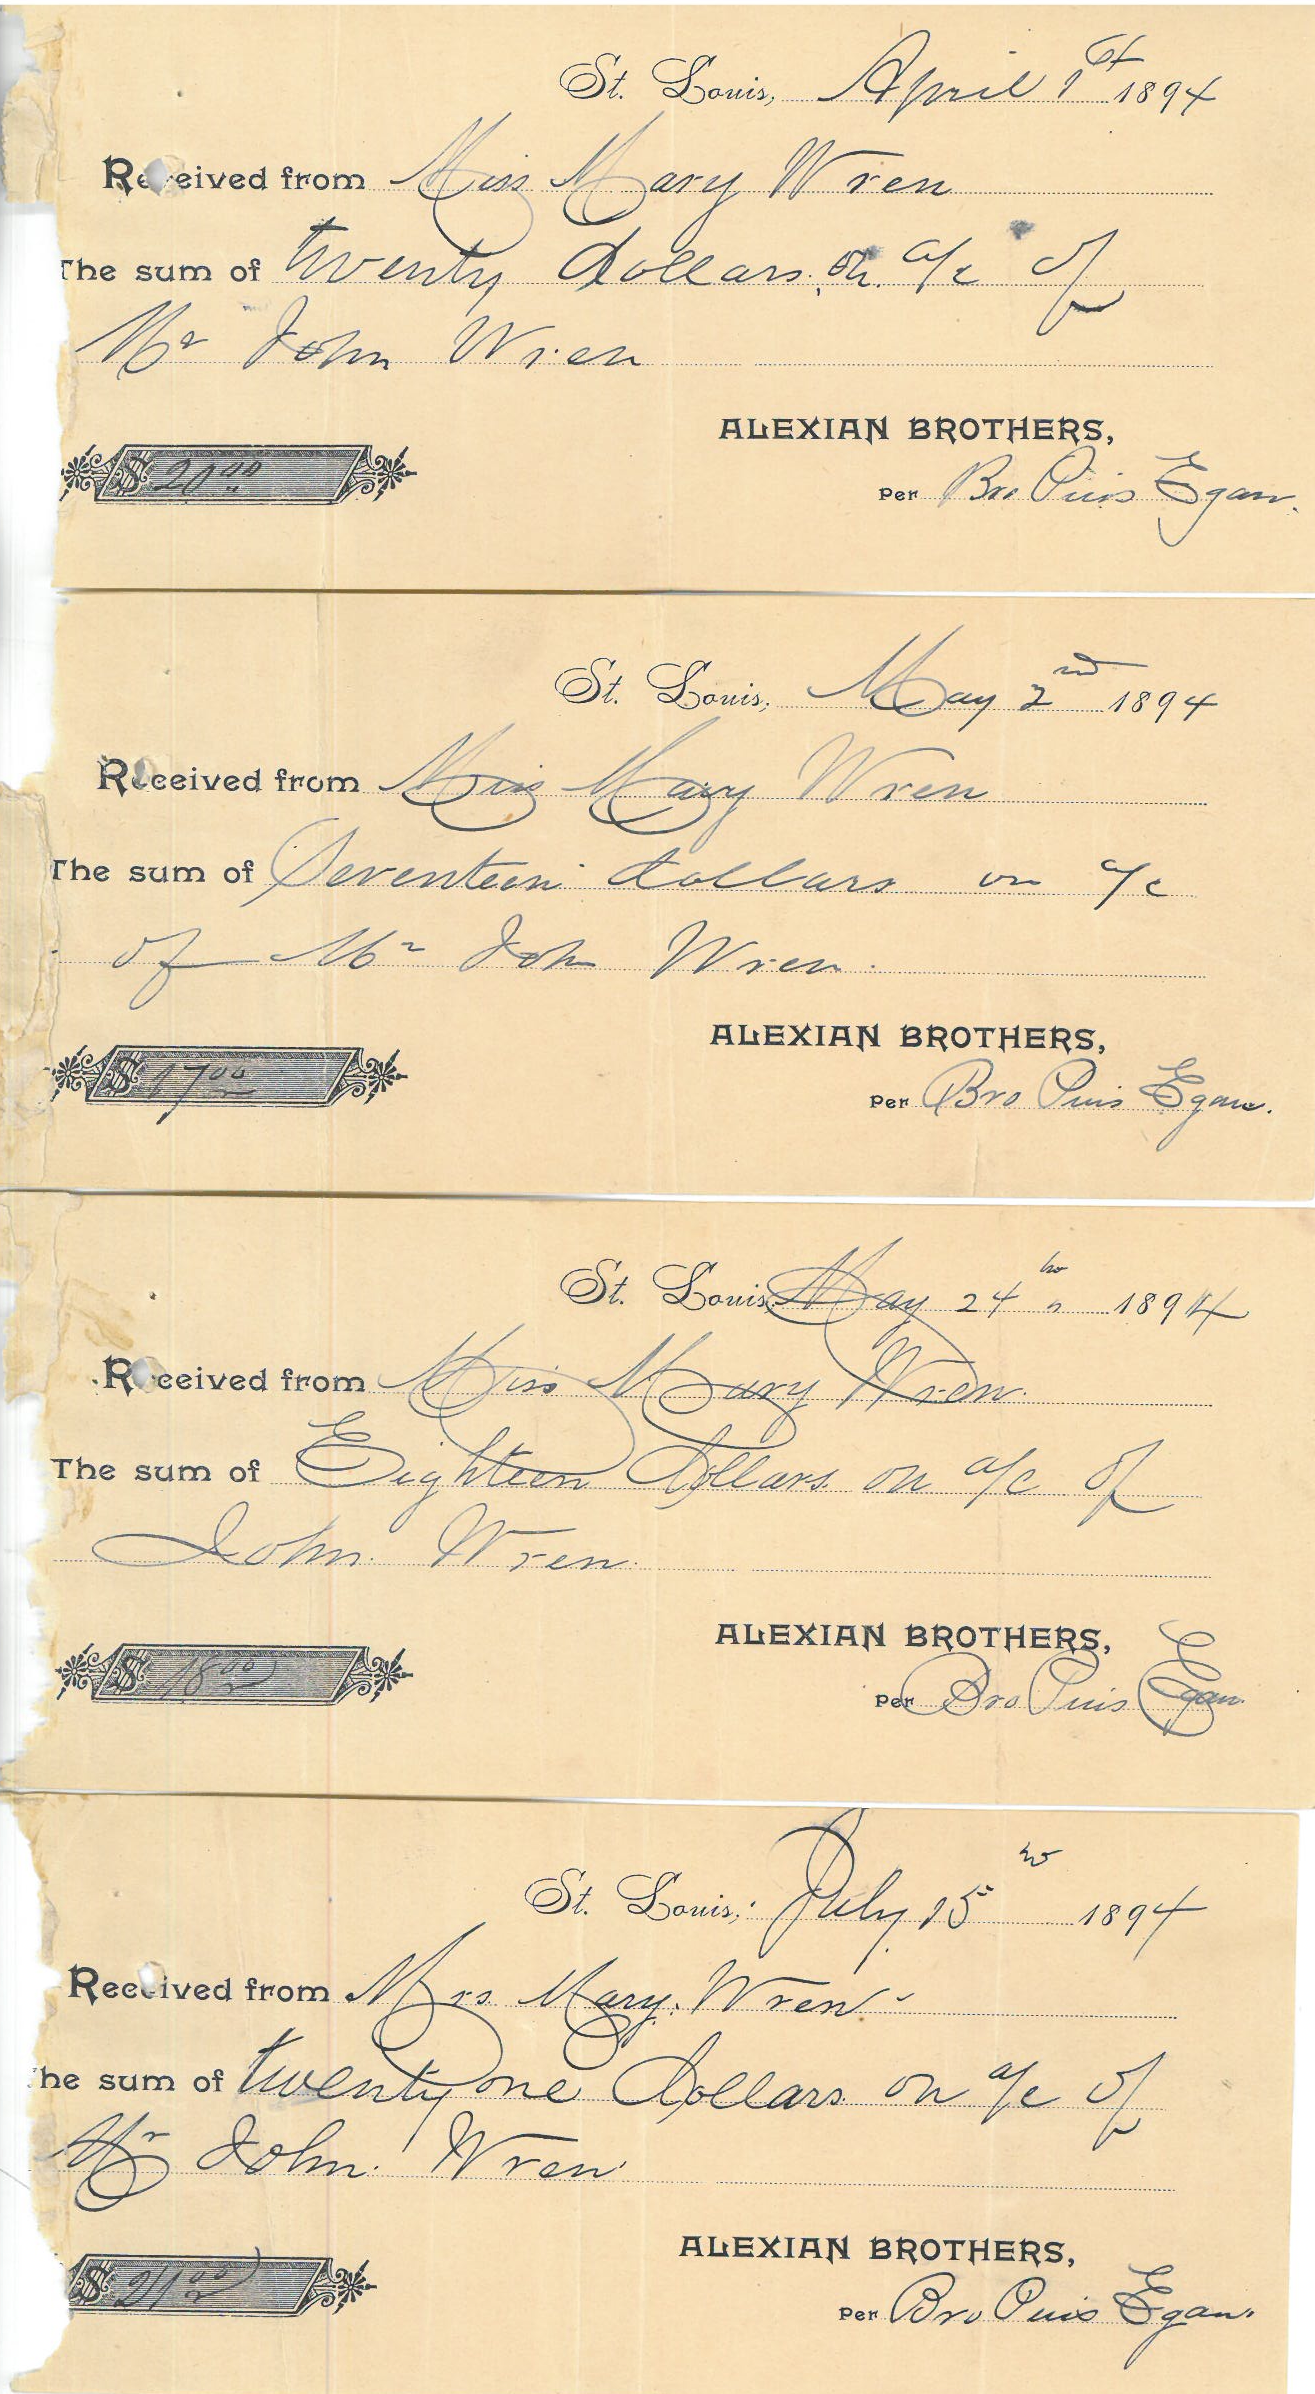 St. Louis, April 1st 1894
Received from Miss Mary Wren
The sum of twenty dollars on a/c of
Mr John Wren
ALEXIAN BROTHERS,
$ 20.00
per Bro Pius Egan.
St. Louis, May 2nd 1894
Received from Miss Mary Wren
The sum of Seventeen dollars on a/c
of Mr John Wren.
ALEXIAN BROTHERS,
$ 17.00
per Bro Pius Egan.
St. Louis, May 24th 1894
Received from Miss Mary Wren.
The sum of Eighteen Dollars on a/c of
John Wren.
ALEXIAN BROTHERS,
$ 18.00
per Bro Pius Egan.
St. Louis, July 15th 1894
Received from Mrs Mary Wren
The sum of twenty one Dollars on a/c of
Mr John Wren
ALEXIAN BROTHERS,
$ 21.00
per Bro Pius Egan.